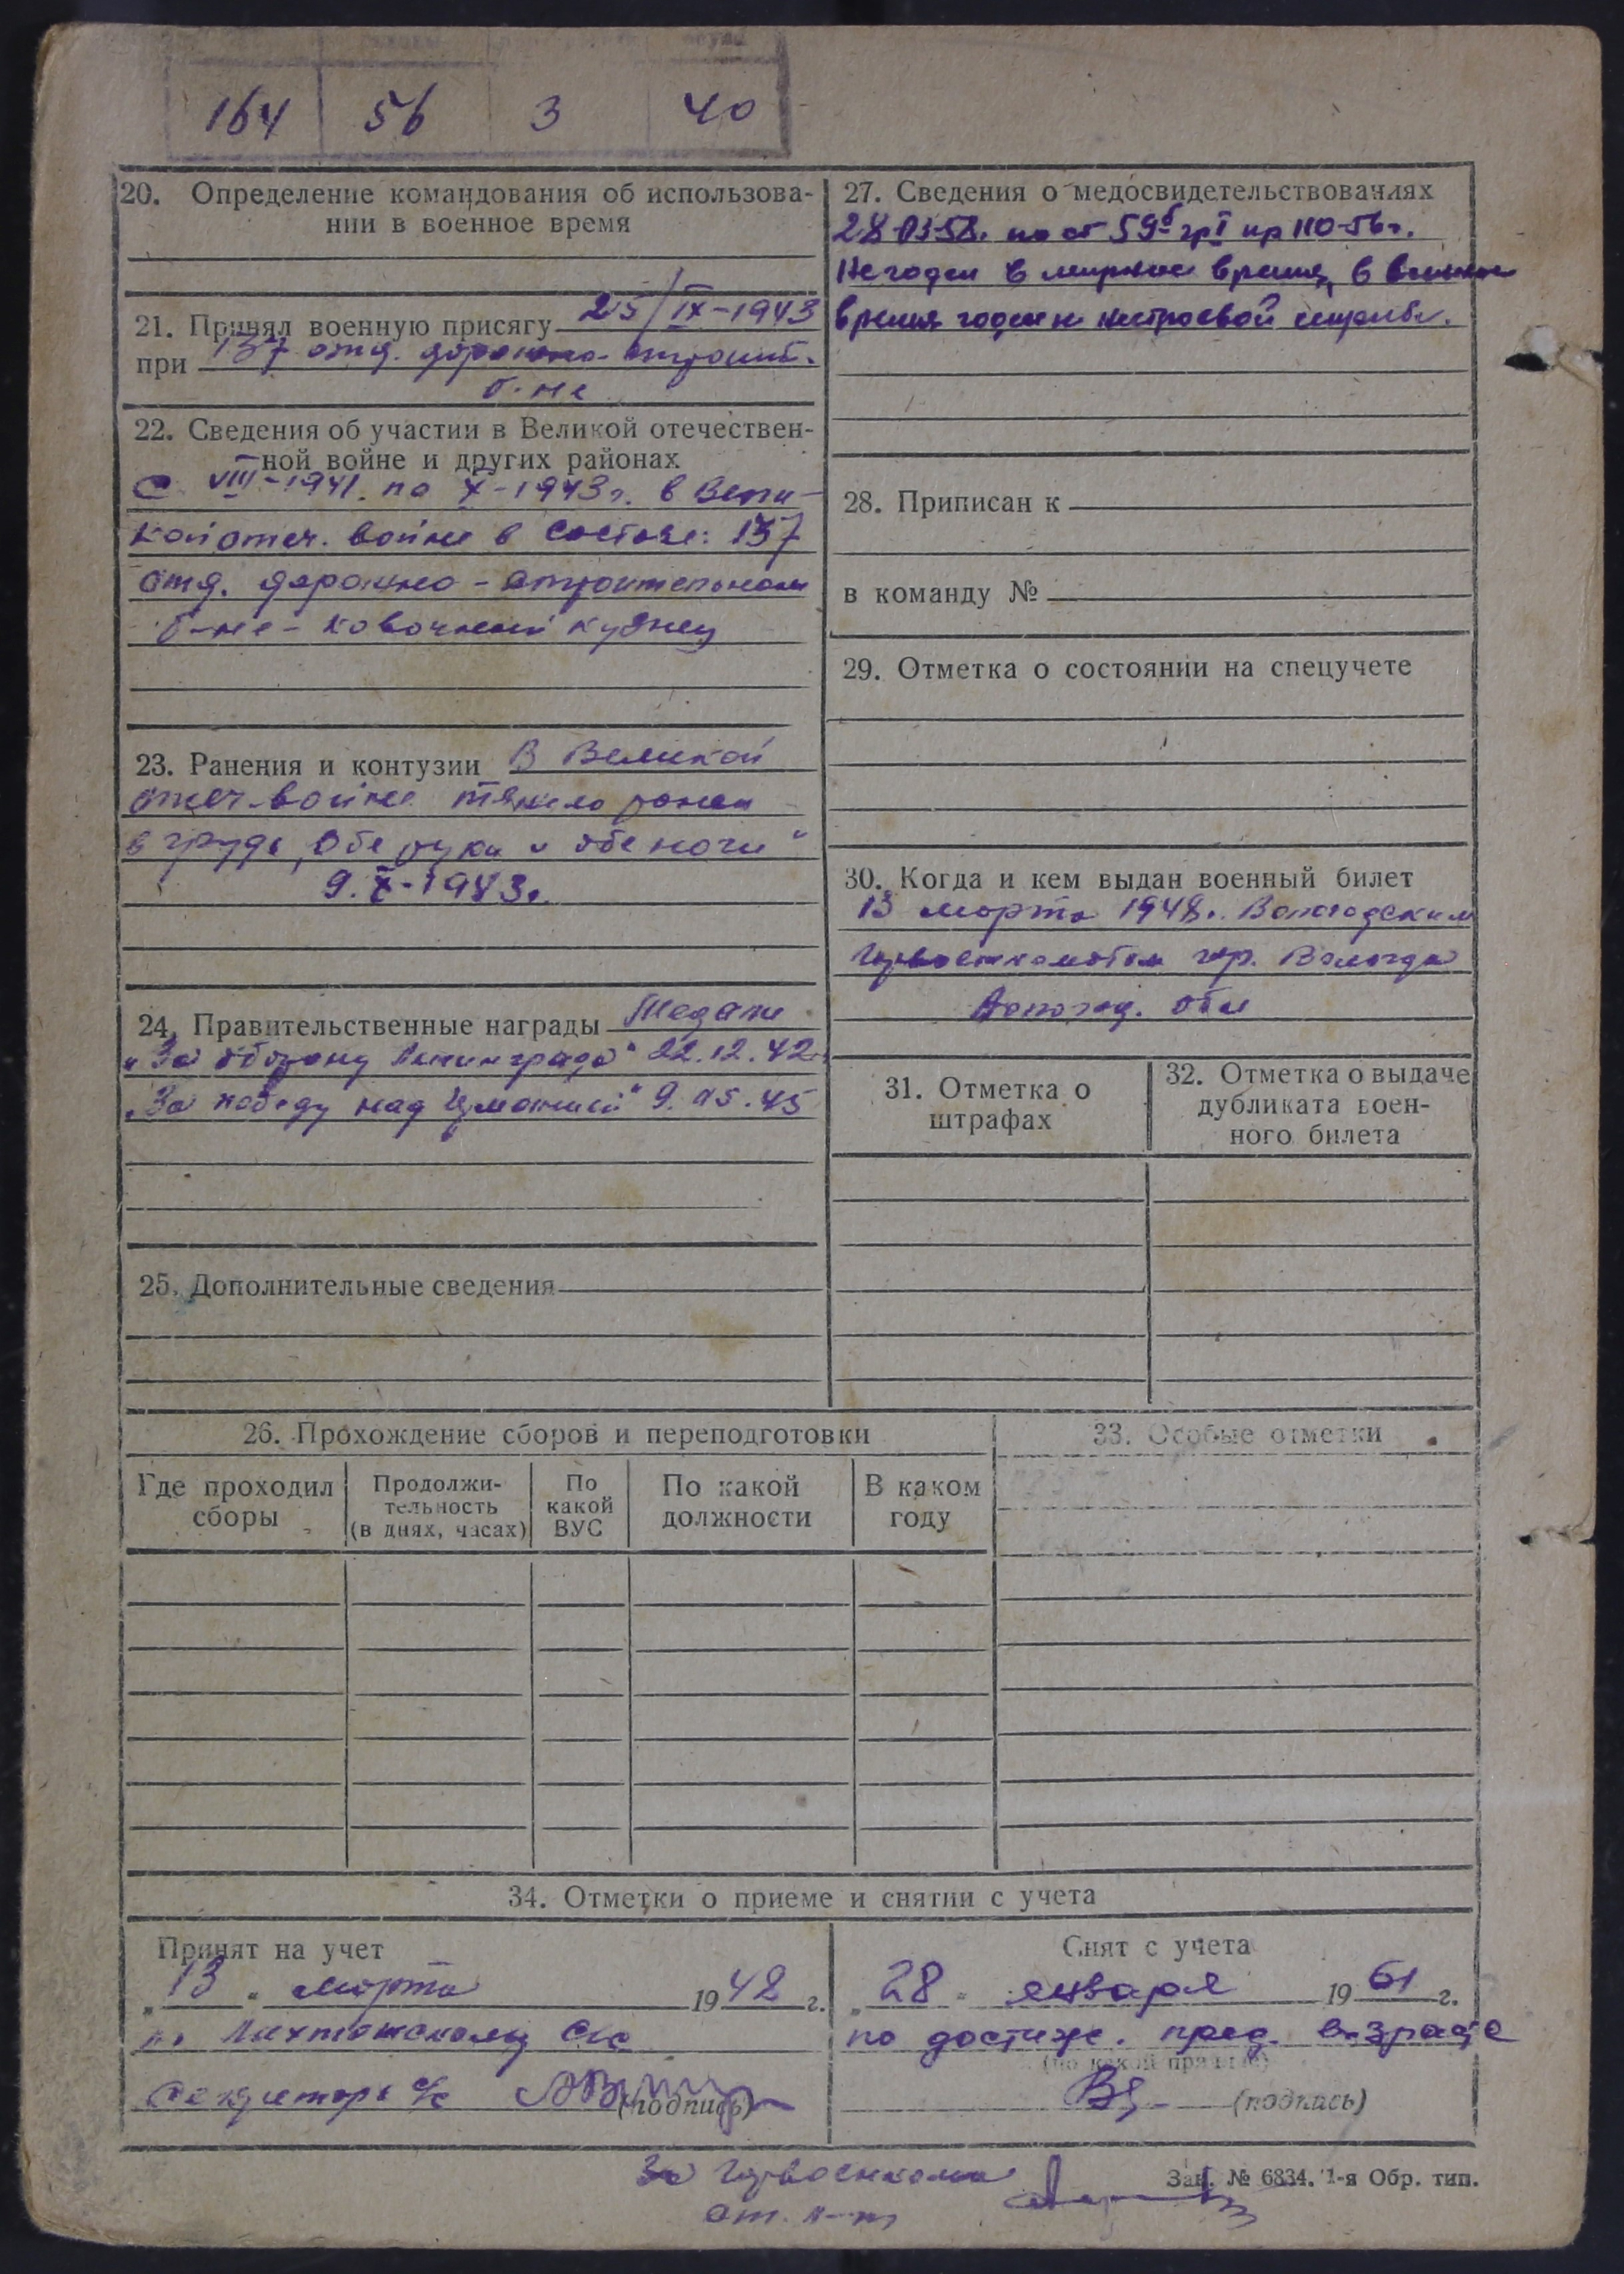 164 56 3 40
20. Определение командования об использова-
нии в военное время
21. Принял военную присягу 25/IX-1943
при 137 отд. дорожно-строит.
б-не
22. Сведения об участии в Великой отечествен-
ной войне и других районах
с VIII-1941. по X-1943г. в Вели-
кой отеч. войне в составе: 137
отд. дорожно-строительном
б-не - ковочный кузнец
23. Ранения и контузии В Великой
отеч. войне тяжело ранен
в грудь, обе руки и обе ноги"
9.X-1943г.
24. Правительственные награды Медали
"За оборону Ленинграда" 22.12.42
"За победу над Германией" 9.05.45
25. Дополнительные сведения
27. Сведения о медосвидетельствованиях
28.03.58. по ст 59б гр I пр 110-56г.
Не годен в мирное время, в военное
время годен к нестроевой службе.
28. Приписан к
в команду №
29. Отметка о состоянии на спецучете
30. Когда и кем выдан военный билет
13 марта 1948г. Вологодским
Горвоенкоматом гор. Вологда
Вологод. обл
31. Отметка о
штрафах
32. Отметка о выдаче
дубликата воен-
ного билета
26. Прохождение сборов и переподготовки
Где проходил
сборы
Продолжи-
тельность
(в днях, часах)
По
какой
ВУС
По какой
должности
В каком
году
33. Особые отметки
34. Отметки о приеме и снятии с учета
Принят на учет
"13" марта 1948 г.
по Лихтошскому с/с
Секретарь с/с
(подпись)
Снят с учета
"28" января 1961 г.
по достиж. пред. возраста
(по какой причине)
(подпись)
За Горвоенкома
ст. л-т
Зак. № 6834. 1-я Обр. тип.